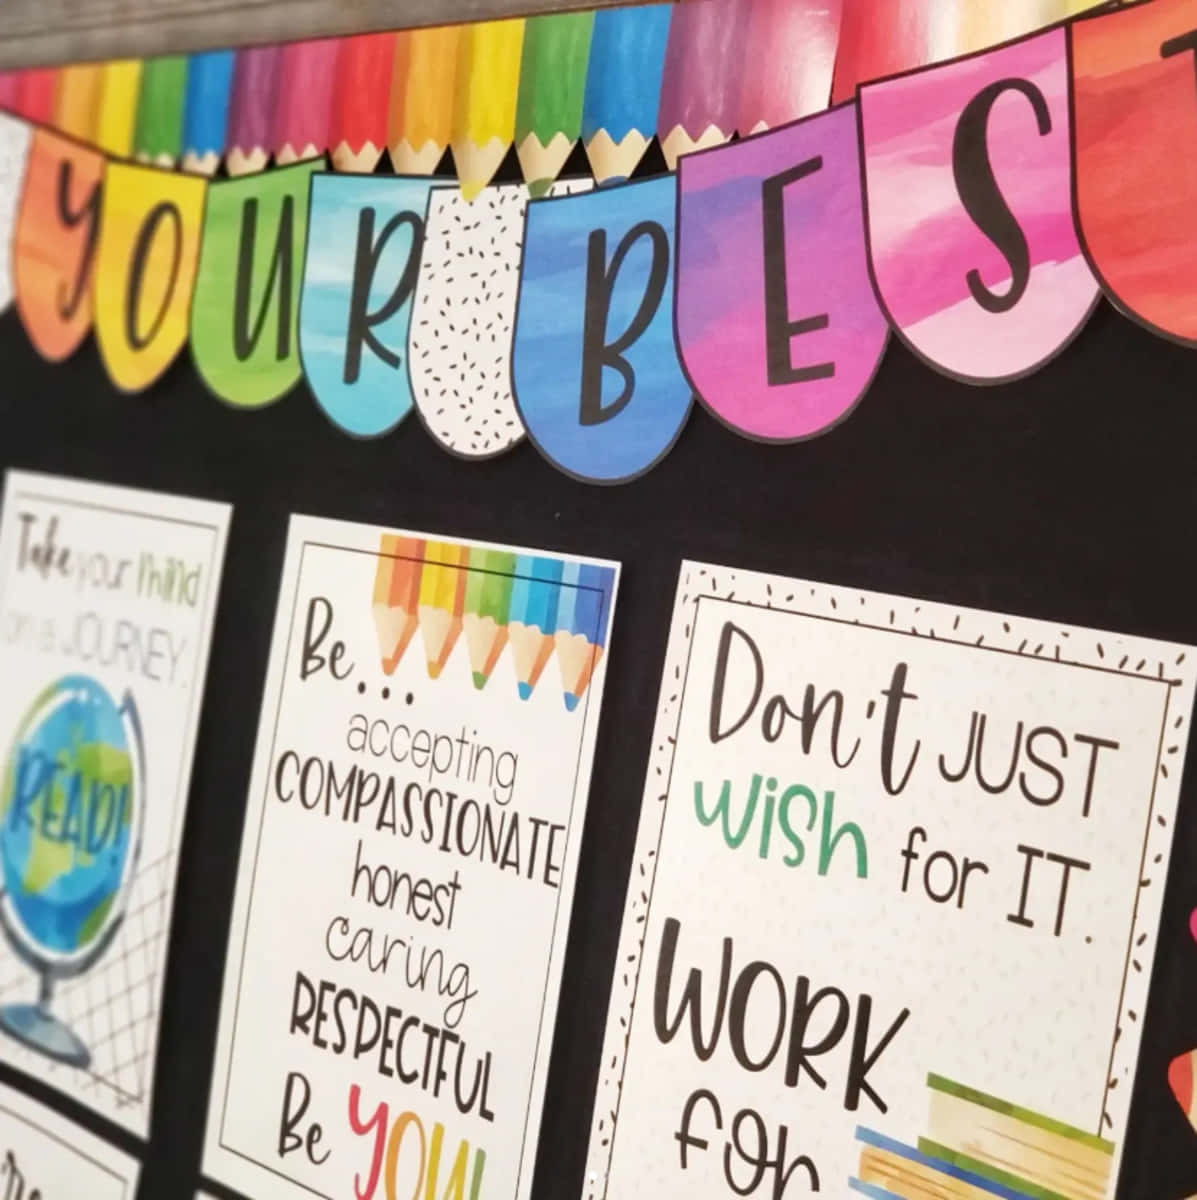 YOUR BEST
Take your mind
on a JOURNEY.
READ!
Be...
accepting
COMPASSIONATE
honest
caring
RESPECTFUL
Be YOU!
Don't JUST
wish for IT.
WORK
for